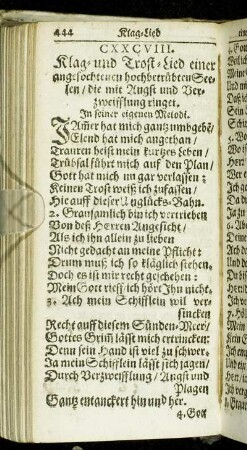 444 Klag-Lied
CXXCVIII.
Klag- und Trost-Lied einer
angefochtenen hochbetrübten See-
len / die mit Angst und Ver-
zweifflung ringet.
In seiner eigenen Melodi.
JAmer hat mich gantz umbgebē /
Elend hat mich angethan /
Trauren heist mein kurtzes Leben /
Trübsal führt mich auf den Plan /
Gott hat mich nu gar verlassen :
Keinen Trost weiß ich zufassen /
Hie auff dieser Unglücks-Bahn.
2. Grausamlich bin ich vertrieben
Von deß HErren Angesicht /
Als ich ihn allein zu lieben
Nicht gedacht an meine Pflicht :
Drum muß ich so kläglich stehen,
Doch es ist mir recht geschehen :
Mein Gott rieff / ich hört Ihn nicht.
3. Ach mein Schifflein wil ver-
sincken
Recht auff diesem Sünden-Meer /
Gottes Grim̃ lässt mich ertrincken :
Denn sein Hand ist viel zu schwer.
Ja mein Schifflein lässt sich jagen /
Durch Verzweifflung / Angst und
Plagen
Gantz entanckert hin und her.
4. Gott